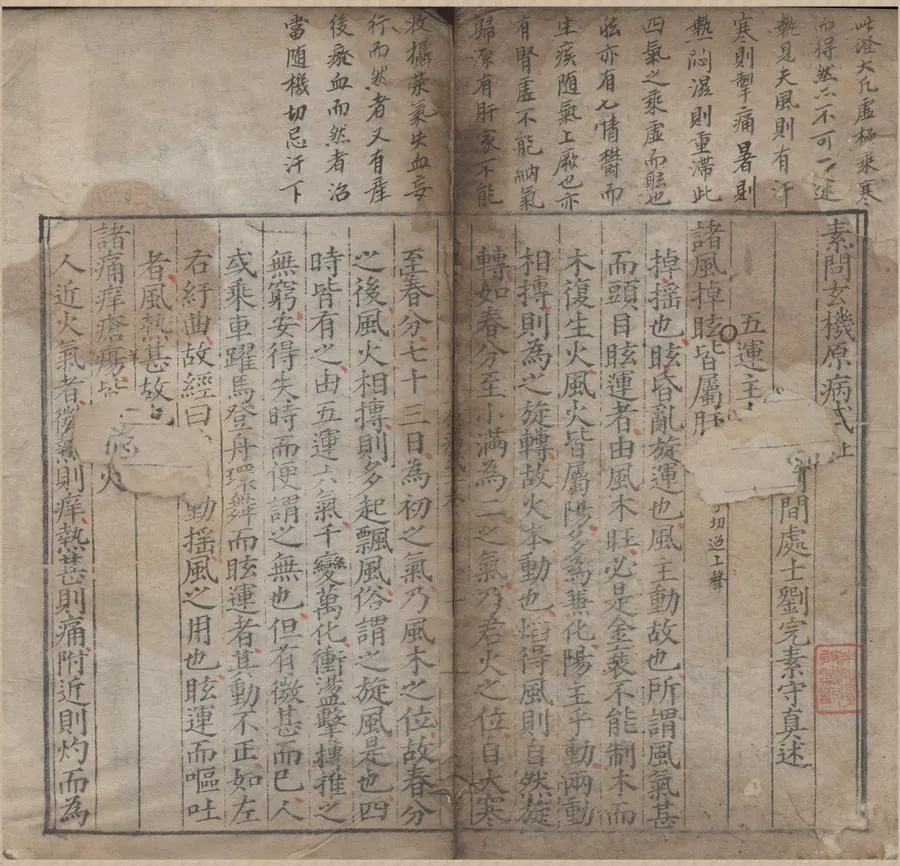 此證大凡虛極乘寒
而得然亦不可一途
執見夫風則有汗
寒則掣痛暑則
熱悶濕則重滯此
四氣之乘虛而眩也
眩亦有七情鬱而
生痰隨氣上厥也亦
有腎虛不能納氣
歸源有肝家不能
收攝榮氣失血妄
行而然者又有產
後瘀血而然者治
當随機切忌汗下
素問玄機原病式上
間處士劉完素守真述
五運主
諸風掉眩皆屬肝
切迢上聲
掉摇也眩昏亂旋運也風主動故也所謂風氣甚
而頭目眩運者由風木旺必是金衰不能制木而
木復生火風火皆屬陽多為兼化陽主乎動兩動
相摶則為之旋轉故火本動也焰得風則自然旋
轉如春分至小滿為二之氣乃君火之位自大寒
至春分七十三日為初之氣乃風木之位故春分
之後風火相摶則多起飄風俗謂之旋風是也四
時皆有之由五運六氣千變萬化衝盪擊摶推之
無窮安得失時而便謂之無也但有微甚而已人
或乘車躍馬登舟環舞而眩運者其動不正如左
右紆曲故經曰 動摇風之用也眩運而嘔吐
者風熱甚故
諸痛痒瘡瘍皆 火
痒
人近火氣者微熱則痒熱甚則痛附近則灼而為